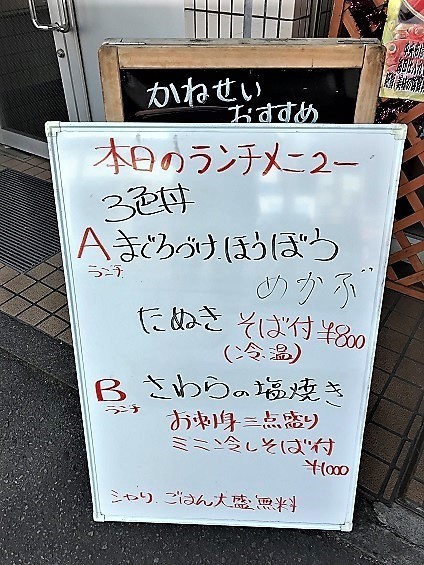 かねせい
おすすめ
本日のランチメニュー
3色丼
A まぐろづけ.ほうぼう
ランチ
めかぶ
たぬき そば付 ¥800
(冷.温)
B さわらの塩焼き
ランチ
お刺身三点盛り
ミニ冷しそば付
¥1000
シャリ.ごはん大盛無料